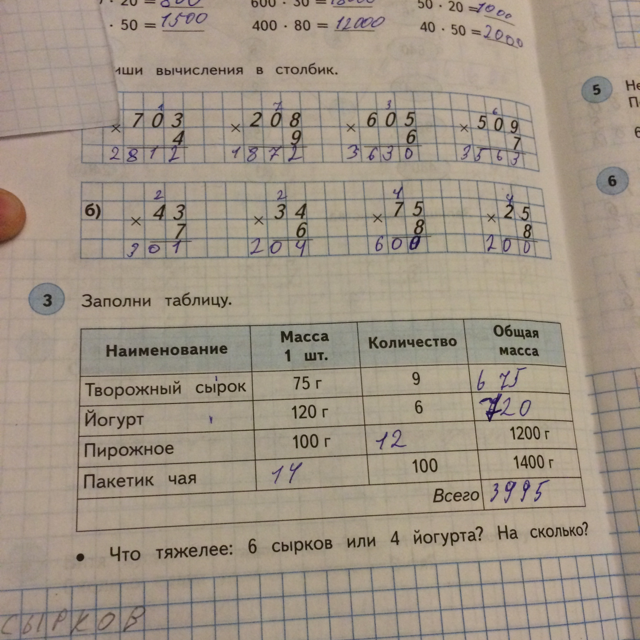 · 20 = 800 600 · 30 = 18000 50 · 20 = 1000
· 50 = 1500 400 · 80 = 12000 40 · 50 = 2000
иши вычисления в столбик.
1 7 3 6
703 208 605 509
× 4 × 9 × 6 × 7
2812 1872 3630 3563
б) 2 2 4 4
43 34 75 25
× 7 × 6 × 8 × 8
301 204 600 200
3 Заполни таблицу.
Наименование Масса 1 шт. Количество Общая масса
Творожный сырок 75 г 9 675
Йогурт 120 г 6 720
Пирожное 100 г 12 1200 г
Пакетик чая 14 100 1400 г
Всего 3995
• Что тяжелее: 6 сырков или 4 йогурта? На сколько?
СЫРКОВ
5 Не
П
6